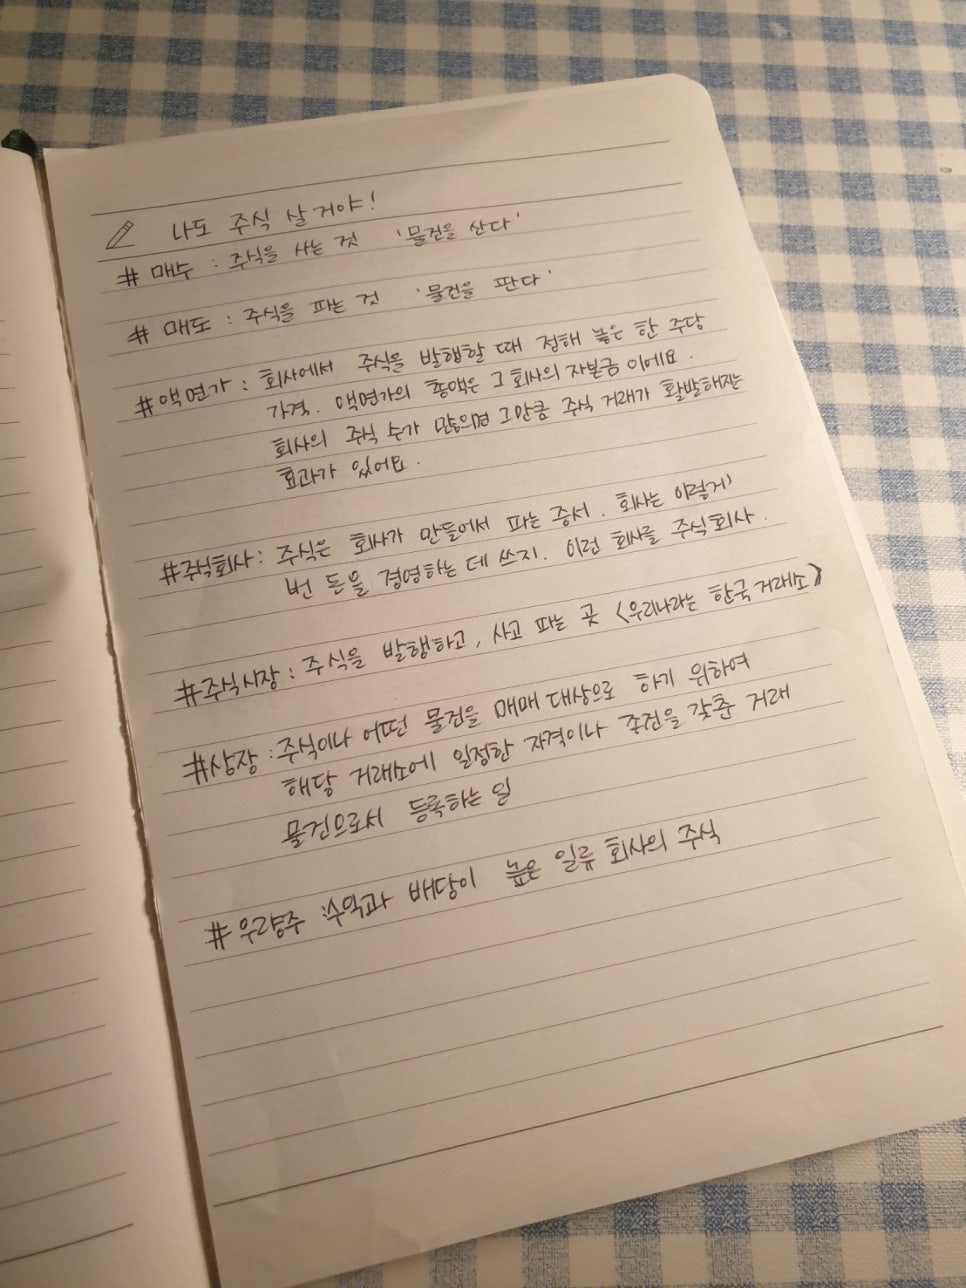 나도 주식 살거야!
# 매수 : 주식을 사는 것 '물건을 산다'
# 매도 : 주식을 파는 것 '물건을 판다'
# 액면가 : 회사에서 주식을 발행할 때 정해 놓은 한 주당
가격. 액면가의 총액은 그 회사의 자본금이에요.
회사의 주식 수가 많으면 그만큼 주식 거래가 활발해지는
효과가 있어요.
# 주식회사 : 주식은 회사가 만들어서 파는 증서. 회사는 이렇게
번 돈을 경영하는 데 쓰지. 이런 회사를 주식회사.
# 주식시장 : 주식을 발행하고, 사고 파는 곳 <우리나라는 한국거래소>
# 상장 : 주식이나 어떤 물건을 매매 대상으로 하기 위하여
해당 거래소에 일정한 자격이나 조건을 갖춘 거래
물건으로서 등록하는 일
# 우량주 : 수익과 배당이 높은 일류 회사의 주식